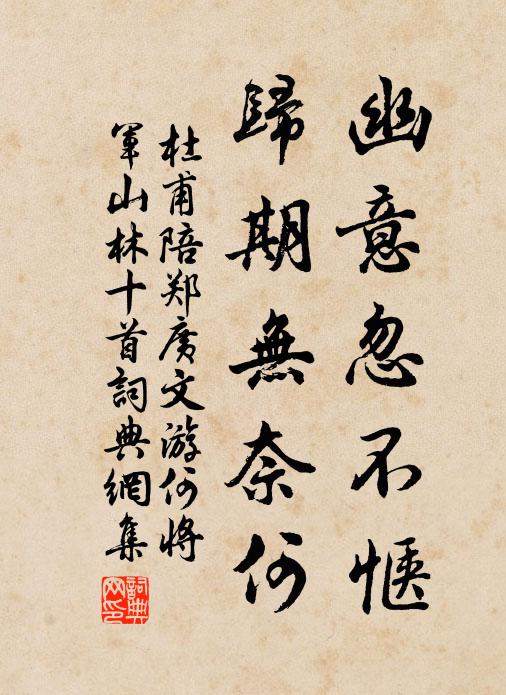 幽意忽不愜
歸期無奈何
杜甫陪郑廣文游何將
軍山林十首詞典網集
詞典网印